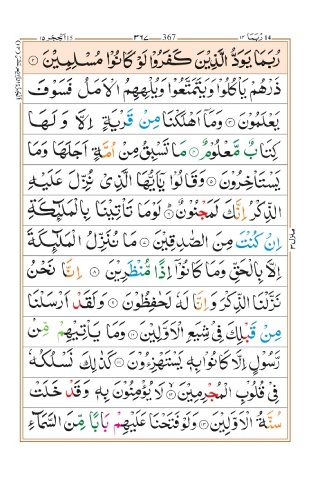 ربما ١٤ 367 ٣٦٧ الحجر ١٥
رُبَمَا يَوَدُّ الَّذِيْنَ كَفَرُوْا لَوْ كَانُوْا مُسْلِمِيْنَ ۝٢
ذَرْهُمْ يَاْكُلُوْا وَيَتَمَتَّعُوْا وَيُلْهِهِمُ الْاَمَلُ فَسَوْفَ
يَعْلَمُوْنَ ۝٣ وَمَاۤ اَهْلَكْنَا مِنْ قَرْيَةٍ اِلَّا وَلَهَا
كِتَابٌ مَّعْلُوْمٌ ۝٤ مَا تَسْبِقُ مِنْ اُمَّةٍ اَجَلَهَا وَمَا
يَسْتَاْخِرُوْنَ ۝٥ وَقَالُوْا يٰۤاَيُّهَا الَّذِيْ نُزِّلَ عَلَيْهِ
الذِّكْرُ اِنَّكَ لَمَجْنُوْنٌ ۝٦ لَوْمَا تَاْتِيْنَا بِالْمَلٰٓئِكَةِ
اِنْ كُنْتَ مِنَ الصّٰدِقِيْنَ ۝٧ مَا نُنَزِّلُ الْمَلٰٓئِكَةَ
اِلَّا بِالْحَقِّ وَمَا كَانُوْۤا اِذًا مُّنْظَرِيْنَ ۝٨ اِنَّا نَحْنُ
نَزَّلْنَا الذِّكْرَ وَاِنَّا لَهٗ لَحٰفِظُوْنَ ۝٩ وَلَقَدْ اَرْسَلْنَا
مِنْ قَبْلِكَ فِيْ شِيَعِ الْاَوَّلِيْنَ ۝١٠ وَمَا يَاْتِيْهِمْ مِّنْ
رَّسُوْلٍ اِلَّا كَانُوْا بِهٖ يَسْتَهْزِءُوْنَ ۝١١ كَذٰلِكَ نَسْلُكُهٗ
فِيْ قُلُوْبِ الْمُجْرِمِيْنَ ۝١٢ لَا يُؤْمِنُوْنَ بِهٖ وَقَدْ خَلَتْ
سُنَّةُ الْاَوَّلِيْنَ ۝١٣ وَلَوْ فَتَحْنَا عَلَيْهِمْ بَابًا مِّنَ السَّمَآءِ